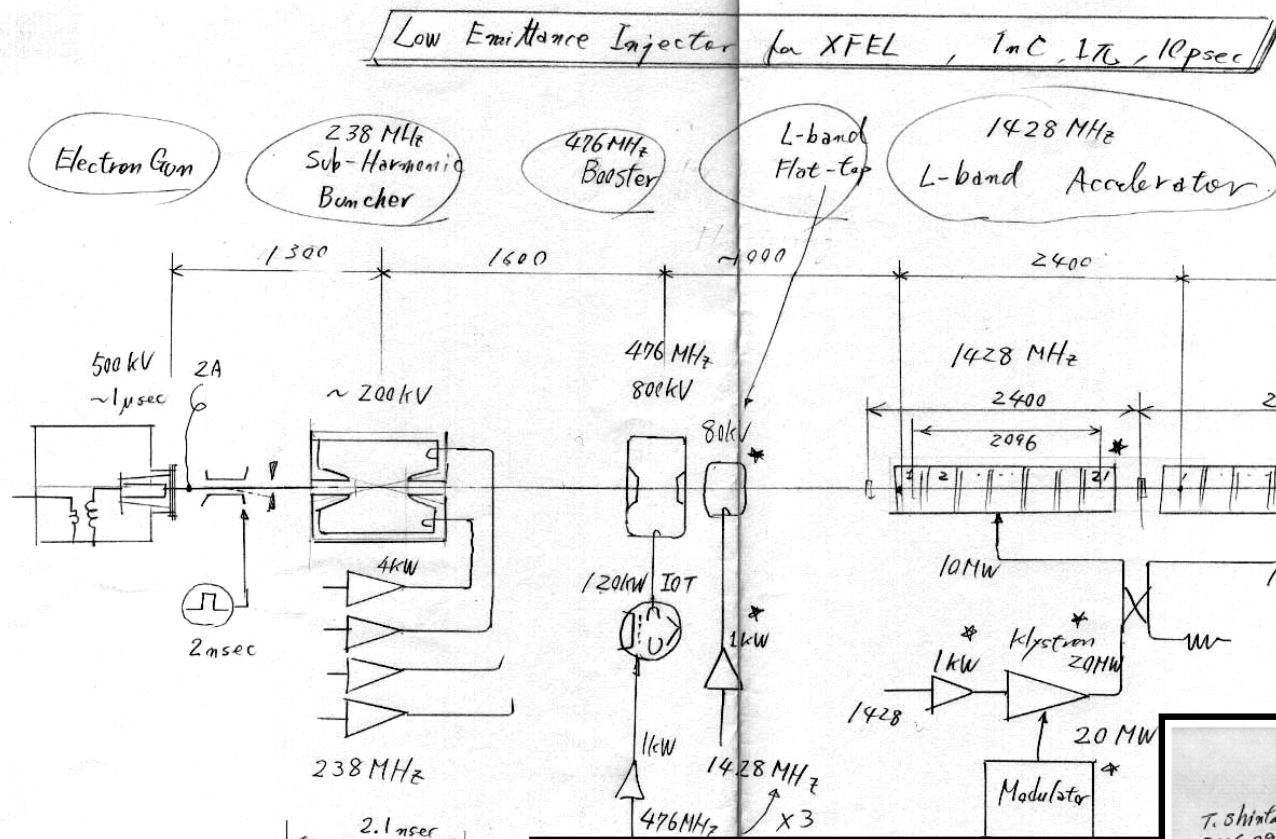 Low Emittance Injector for XFEL , 1nC, 1π, 10psec
Electron Gun
238 MHz
Sub-Harmonic
Buncher
476MHz
Booster
L-band
Flat-top
1428 MHz
L-band Accelerator
1300
1600
~1000
2400
500kV
~1μsec
2A
~200kV
476 MHz
800kV
80kV
1428 MHz
2400
2
2096
1 2 21
1
4kW
120kW IOT
1kW
10MW
2nsec
1kW
Klystron
20MW
1428
238 MHz
1kW
1428MHz
20 MW
Modulator
2.1nsec
476MHz
X3